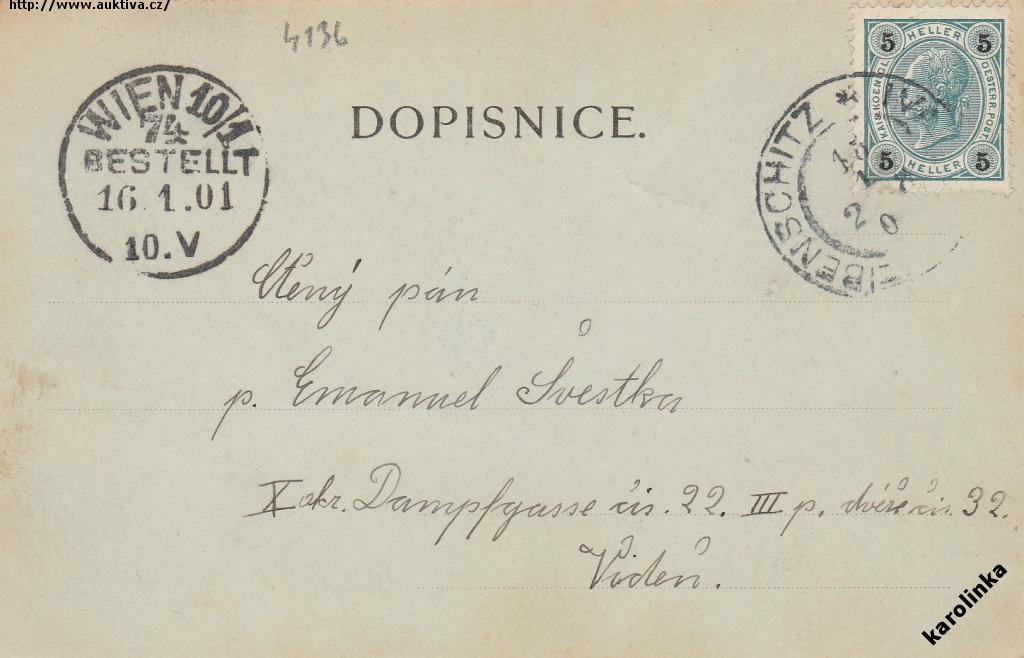 http://www.auktiva.cz/
4136
5 HELLER 5
KAIS. KOEN. OESTERR. POST.
5 HELLER 5
WIEN 10/1
74
BESTELLT
16.1.01
10.V
DOPISNICE.
EIBENSCHITZ *
Ctěný pán
p. Emanuel Švestka
X okr. Dampfgasse čís. 22. III p. dvéře čís. 32.
Vídeň.
karolinka